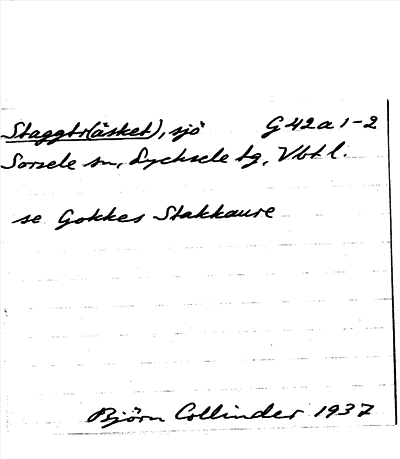 Staggtr(äsket), sjö G 42 a 1-2
Sorsele sn, Lycksele tg, Vbtl.
se Gokkes Stakkaure
Björn Collinder 1937